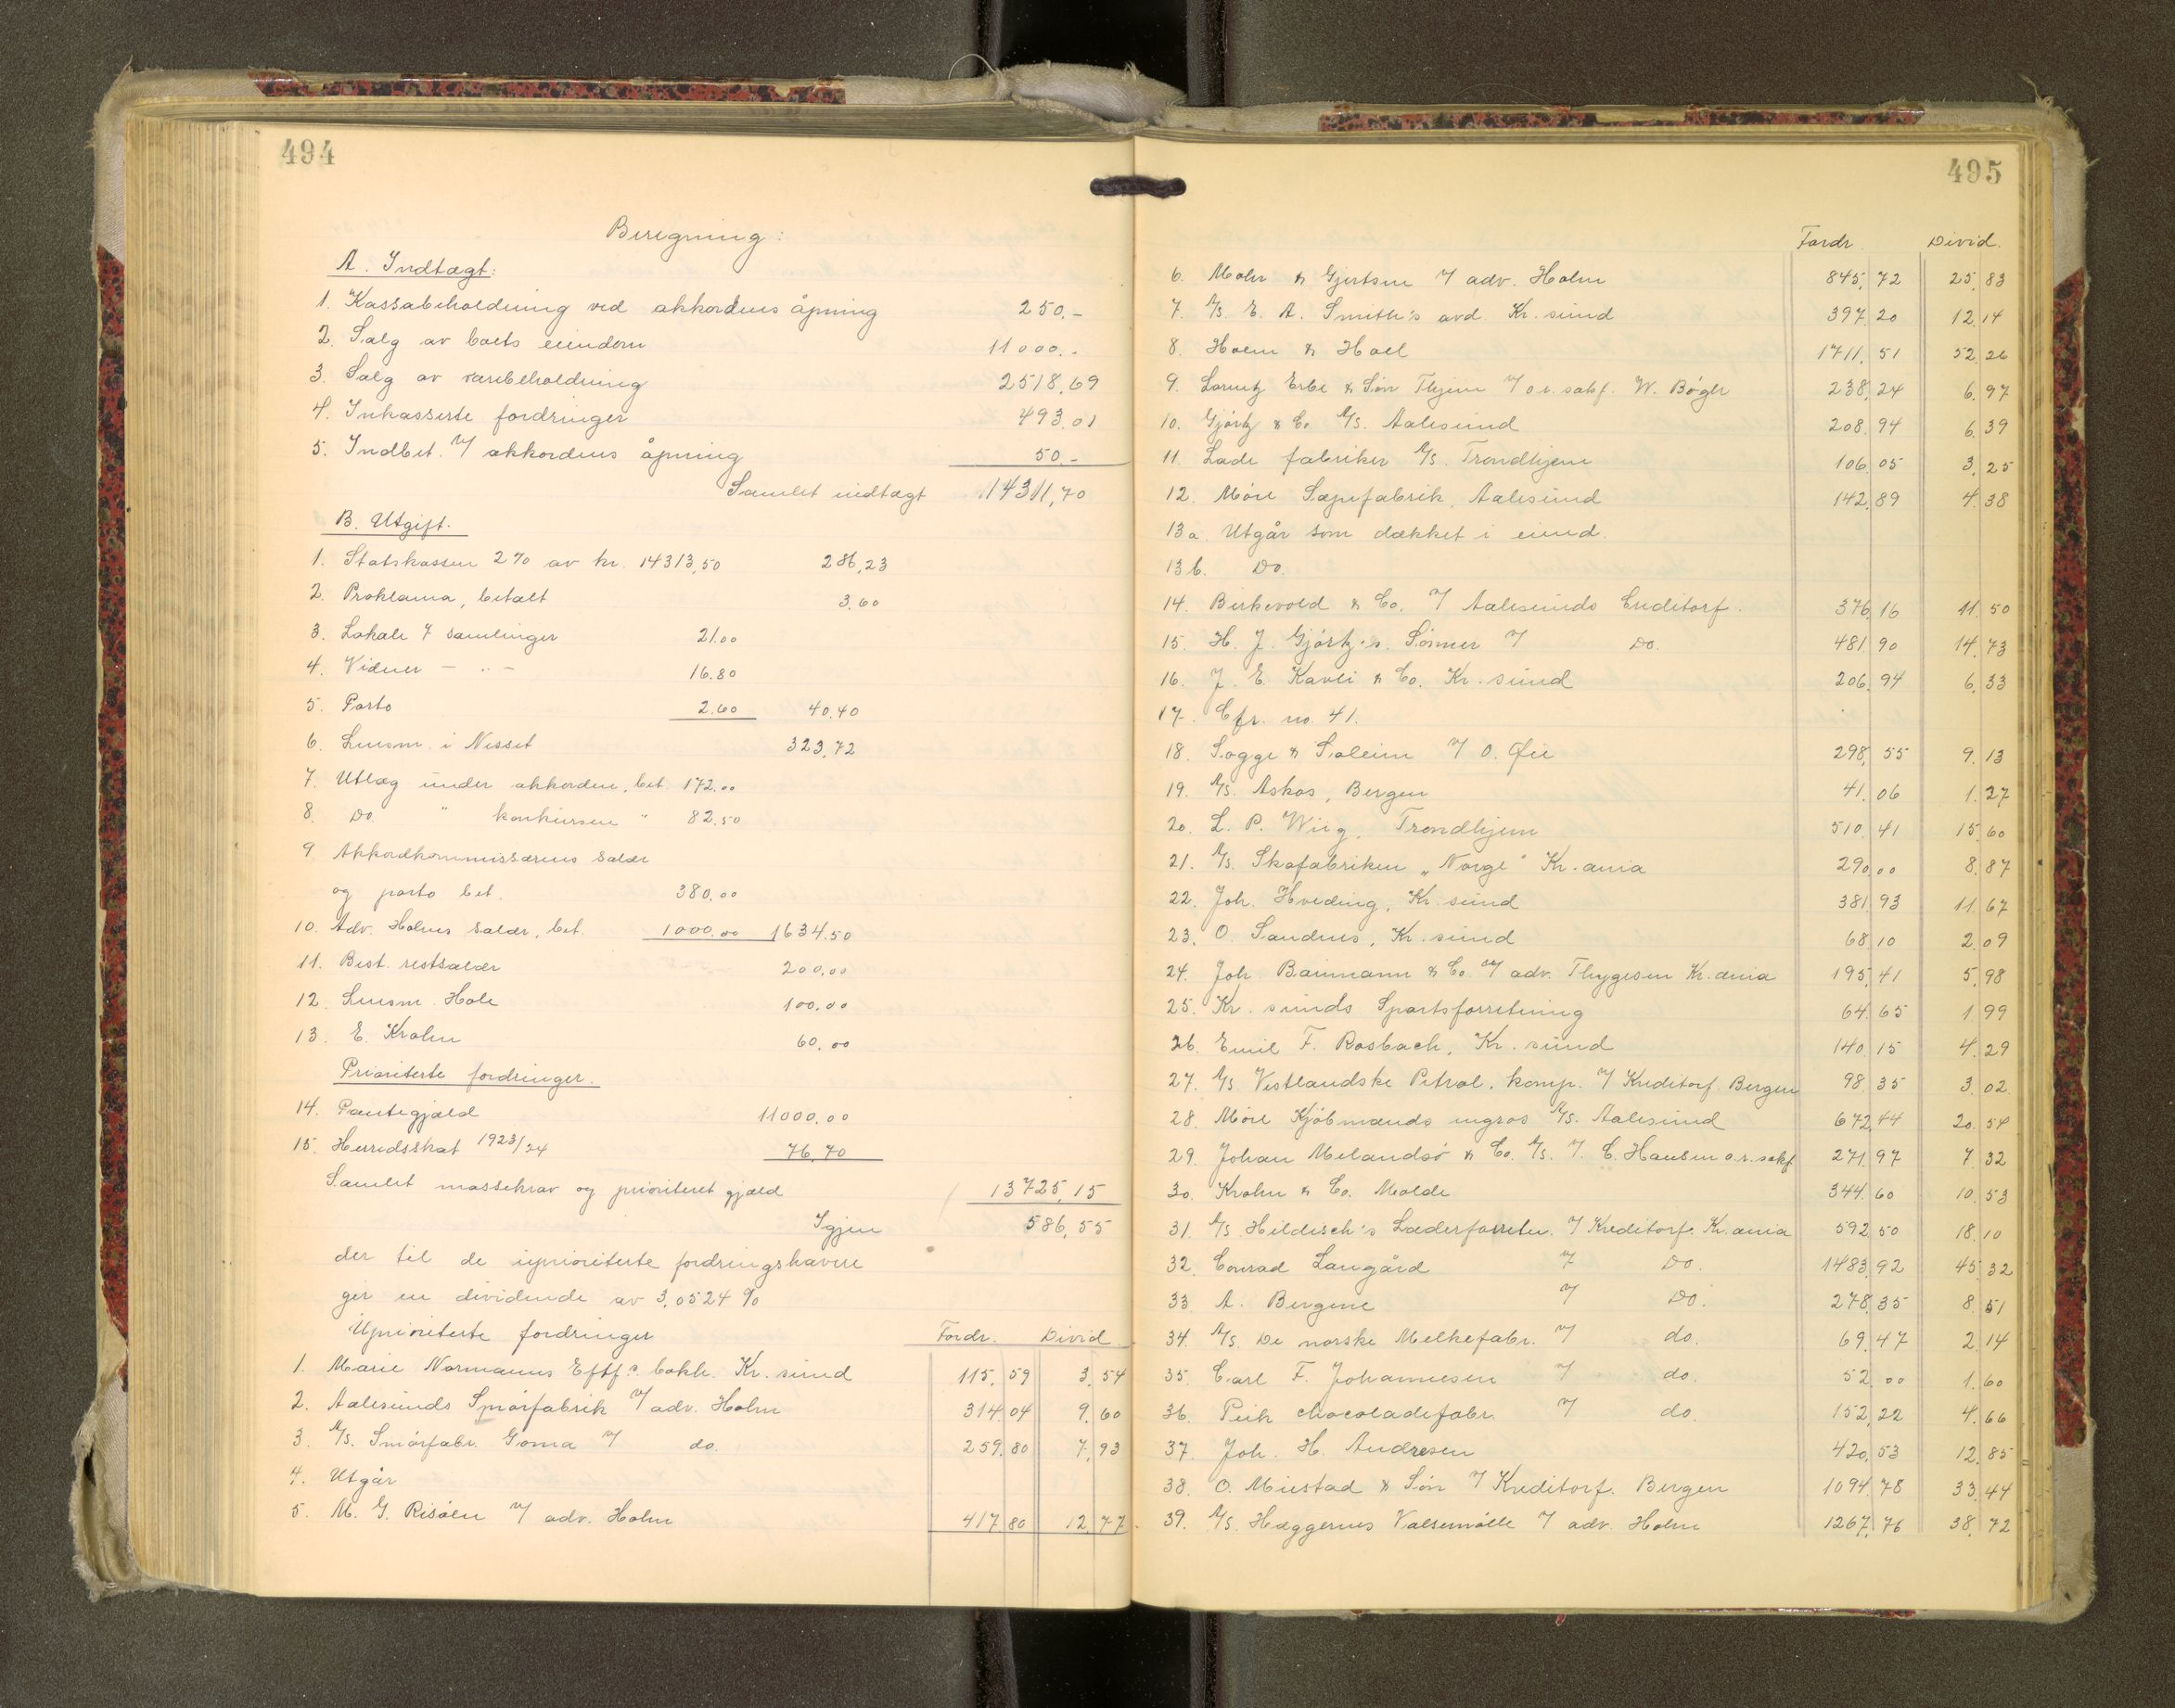 494
Beregning:
A. Indtægt:
1. Kassabeholdning ved akkordens åpning 250.-
2. Salg av boets eiendom 11000.-
3. Salg av varebeholdning 2518,69
4. Inkasserte fordringer 493.01
5. Indbet. v/ akkordens åpning 50.-
Samlet indtægt 14311,70
B. Utgift.
1. Statskassen 2% av kr. 14313,50 286,23
2. Proklama, betalt 3.60
3. Lokale 7 samlinger 21.00
4. Vidner - " - 16.80
5. Porto 2.60 40.40
6. Lensm. i Nesset 323,72
7. Utlæg under akkorden, bet. 172.00
8. Do. " konkursen " 82.50
9. Akkordkommissærens salær
og porto bet. 380.00
10. Adv. Holms salær, bet. 1000.00 1634.50
11. Best. restsalær 200,00
12. Lensm. Hole 100.00
13. E. Krohn 60.00
Prioriterte fordringer.
14. Pantegjæld 11000.00
15. Herredsskat 1923/24 76.70
Samlet massekrav og prioritert gjæld 13725,15
Igjen 586,55
der til de uprioriterte fordringshavere
gir en dividende av 3,0524 %
Uprioriterte fordringer Fordr. Divid.
1. Marie Normanns Eftf.s bokh. Kr.sund 115,59 3,54
2. Aalesunds Smørfabrik v/ adv. Holm 314,04 9,60
3. A/s. Smørfabr. Goma v/ do. 259.80 7,93
4. Utgår
5. M. G. Risøen v/ adv. Holm 417,80 12,77
495
Fordr. Divid.
6. Mohr & Gjertsen v/ adv. Holm 845,72 25,83
7. A/s E. A. Smith's avd. Kr.sund 397,20 12,14
8. Holm & Hoel 1711,51 52,26
9. Lorentz Erbe & Søn Thjem v/ o.r.sakf. W. Bøgh 238,24 6,97
10. Gjørtz & Co. A/s. Aalesund 208.94 6.39
11. Lade fabriker A/s. Trondhjem 106.05 3,25
12. Møre Sæpefabrik, Aalesund 142,89 4.38
13a. Utgår som dækket i eiend.
13b. Do.
14. Birkevold & Co. v/ Aalesunds Creditorf. 376,16 11.50
15. H. J. Gjørtz's. Sønner v/ Do. 481.90 14.73
16. J. E. Kavli & Co. Kr.sund 206.94 6.33
17. Cfr. no. 41.
18. Sogge & Soleim v/ O. Øie 298,55 9.13
19. A/s. Askos, Bergen 41.06 1.27
20. L. P. Wiig, Trondhjem 510.41 15.60
21. A/s. Skofabriken "Norge" Kr.ania 290.00 8.87
22. Joh. Hveding, Kr.sund 381.93 11.67
23. O. Sandnes, Kr.sund 68.10 2.09
24. Joh. Baumann & Co. v/ adv. Thygesen Kr.ania 195.41 5.98
25. Kr.sunds Sportsforretning 64.65 1.99
26. Emil F. Rosbach, Kr.sund 140.15 4.29
27. A/s. Vestlandske Petrol. komp. v/ Kreditorf. Bergen 98.35 3.02
28. Møre Kjøbmands engros A/s. Aalesund 672,44 20.54
29. Johan Melandsø & Co. A/s. v/ C. Hansen o.r.sakf. 271,97 7.32
30. Krohn & Co. Molde 344.60 10.53
31. A/s. Hildisch's Læderforretn. v/ Kreditorf. Kr.ania 592.50 18.10
32. Conrad Langård v/ Do. 1483,92 45.32
33. A. Bergene v/ Do. 278.35 8.51
34. A/s. De norske Melkefabr. v/ do. 69.47 2.14
35. Carl F. Johannesen v/ do. 52.00 1.60
36. Peik chocoladefabr. v/ do. 152,22 4.66
37. Joh. H. Andresen 420,53 12.85
38. O. Mustad & Søn v/ Kreditorf. Bergen 1094.78 33.44
39. A/s. Hæggernes Valsemølle v/ adv. Holm 1267,76 38,72